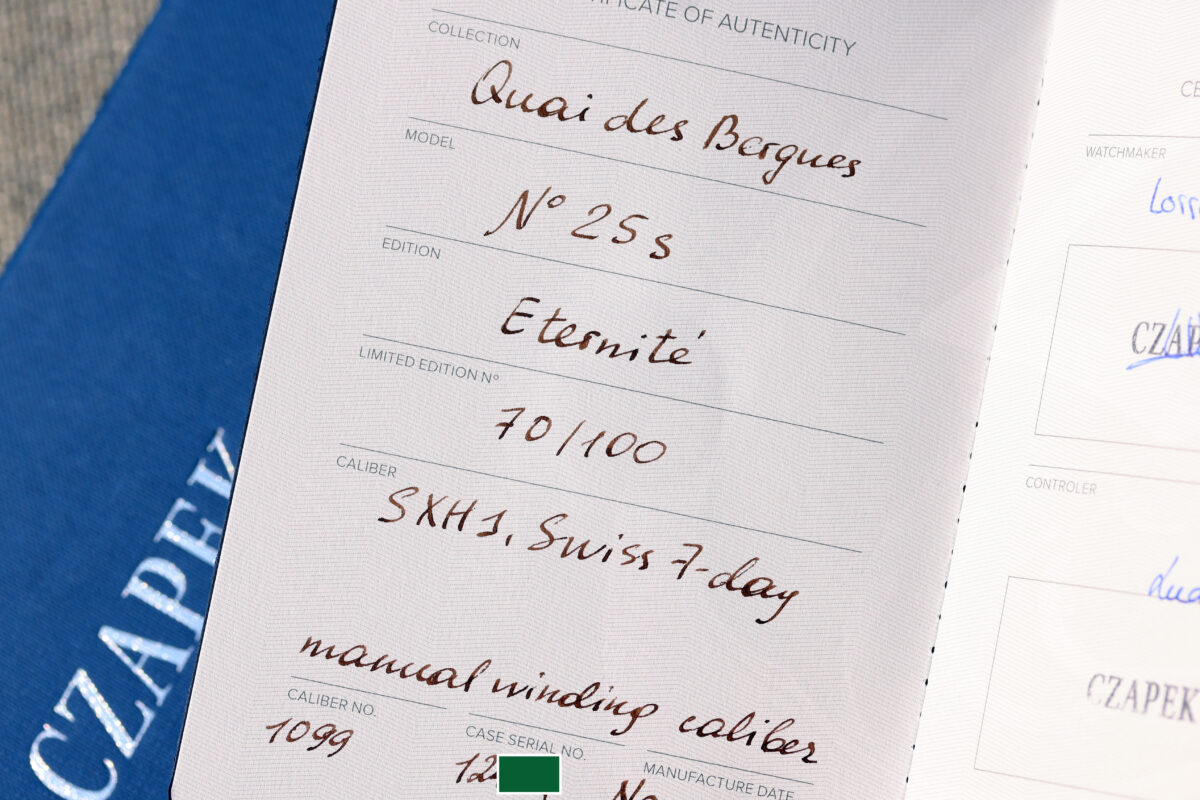 CERTIFICATE OF AUTENTICITY
COLLECTION
Quai des Bergues
MODEL
N° 25s
EDITION
Eternité
LIMITED EDITION N°
70/100
CALIBER
SXH1, Swiss 7-day
manual winding caliber
CALIBER NO.
1099
CASE SERIAL NO.
12
MANUFACTURE DATE
WATCHMAKER
CZAPEK
CONTROLER
CZAPEK
CZAPEK